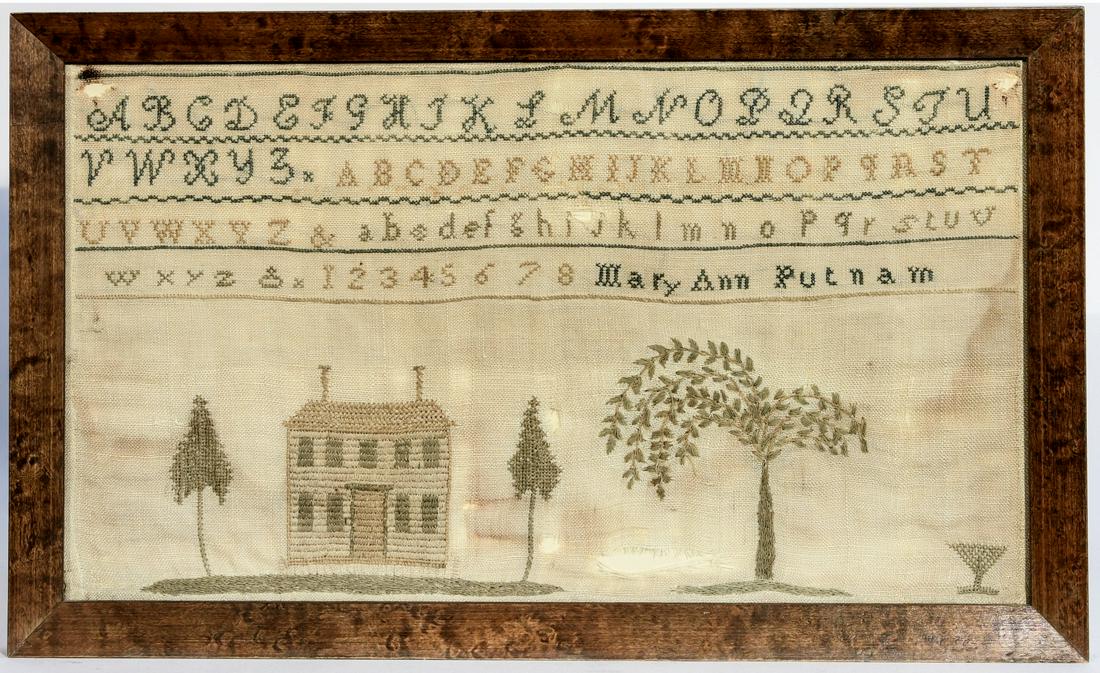 A B C D E F G H I K L M N O P Q R S T U
V W X Y Z x A B C D E F G H I J K L M N O P q R S T
U V W X Y Z & a b c d e f g h i j k l m n o P q r s t u v
w x y z & x 1 2 3 4 5 6 7 8 Mary Ann Putnam